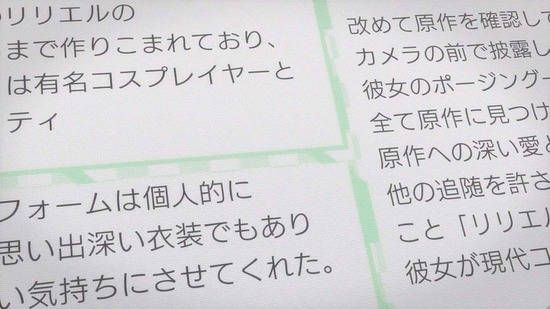 リリエルの
まで作りこまれており、
は有名コスプレイヤーと
ティ
フォームは個人的に
思い出深い衣装でもあり
い気持ちにさせてくれた。
改めて原作を確認して
カメラの前で披露し
彼女のポージング
全て原作に見つけ
原作への深い愛と
他の追随を許さ
こと「リリエル
彼女が現代コ